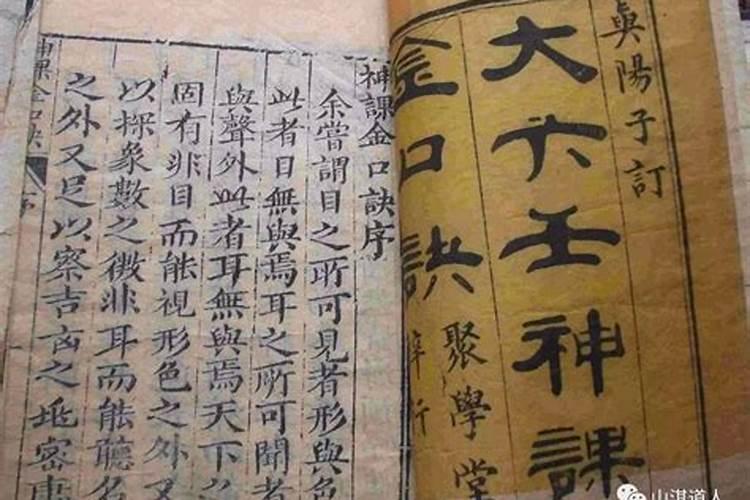 眞陽子訂
大六壬神課
金口訣
聚學堂
梓行
神課金口訣序
余嘗謂目之所可見者形與色
此者目無與焉耳之所可聞者
與聲外此者耳無與焉天下
固有非目而能視形色之外又
以探象數之微非耳而能聽名
之外又足以察吉凶之兆審
神課金口訣 序
山淇道人